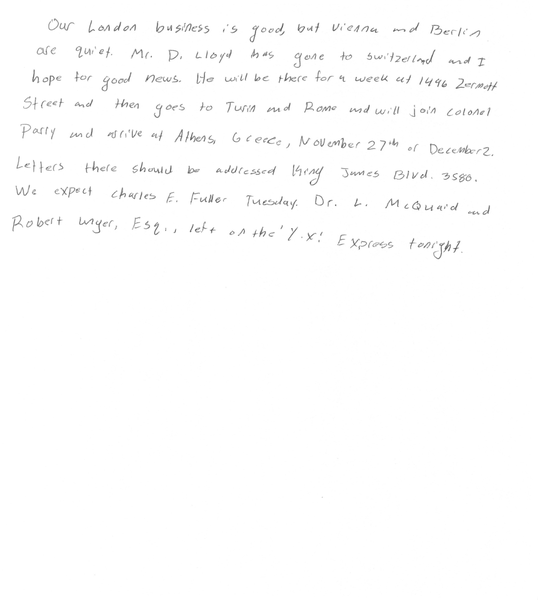 Our London business is good, but Vienna and Berlin
are quiet. Mr. D. Lloyd has gone to Switzerland and I
hope for good news. He will be there for a week at 1496 Zermott
Street and then goes to Turin and Rome and will join Colonel
Parly and arrive at Athens, Greece, November 27th or December 2.
Letters there should be addressed King James Blvd. 3580.
We expect Charles E. Fuller Tuesday. Dr. L. McQuaid and
Robert Unger, Esq., left on the 'Y.X.' Express tonight.